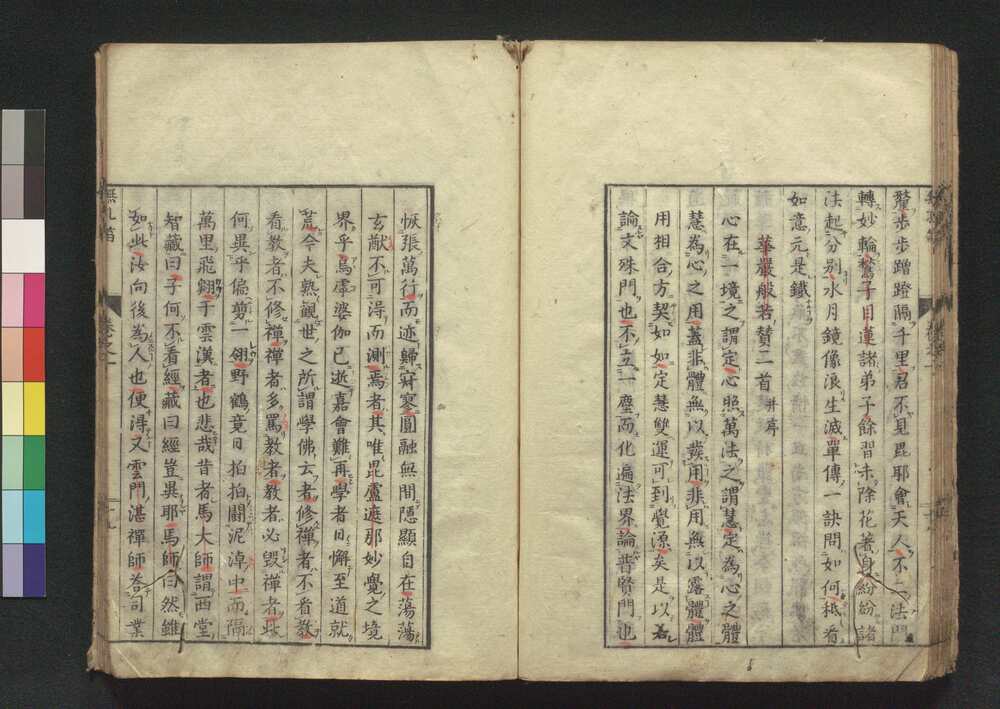 鼇步步蹭蹬隔千里君不見毘耶會天人不二法門
轉妙輪鶖子目蓮諸弟子餘習未除花著身紛紛諸
法起分別水月鏡像浪生滅單傳一訣問如何秖看
如意元是鐵
華嚴般若賛二首并序
心在一境之謂定心照萬法之謂慧定為心之體
慧為心之用蓋非體無以發用非用無以露體體
用相合方契如如定慧雙運可到覺源矣是以若
論文殊門也不立一塵而化遍法界論普賢門也
恢張萬行而迹歸寂寥圓融無間隱顯自在蕩蕩
玄猷不可得而測焉者其唯毘盧遮那妙覺之境
界乎烏虖婆伽已逝嘉會難再學者日懈至道就
荒今夫熟觀世之所謂學佛云者修禪者不看教
看教者不修禪禪者多罵教者教者必毀禪者此
何異乎偏剪一翎野鶴竟日拍拍鬪泥淖中而隔
萬里飛翺于雲漢者也悲哉昔者馬大師謂西堂
智藏曰子何不看經藏曰經豈異耶馬師曰然雖
如此汝向後為人也便得又雲門湛禪師荅司業
無孔笛